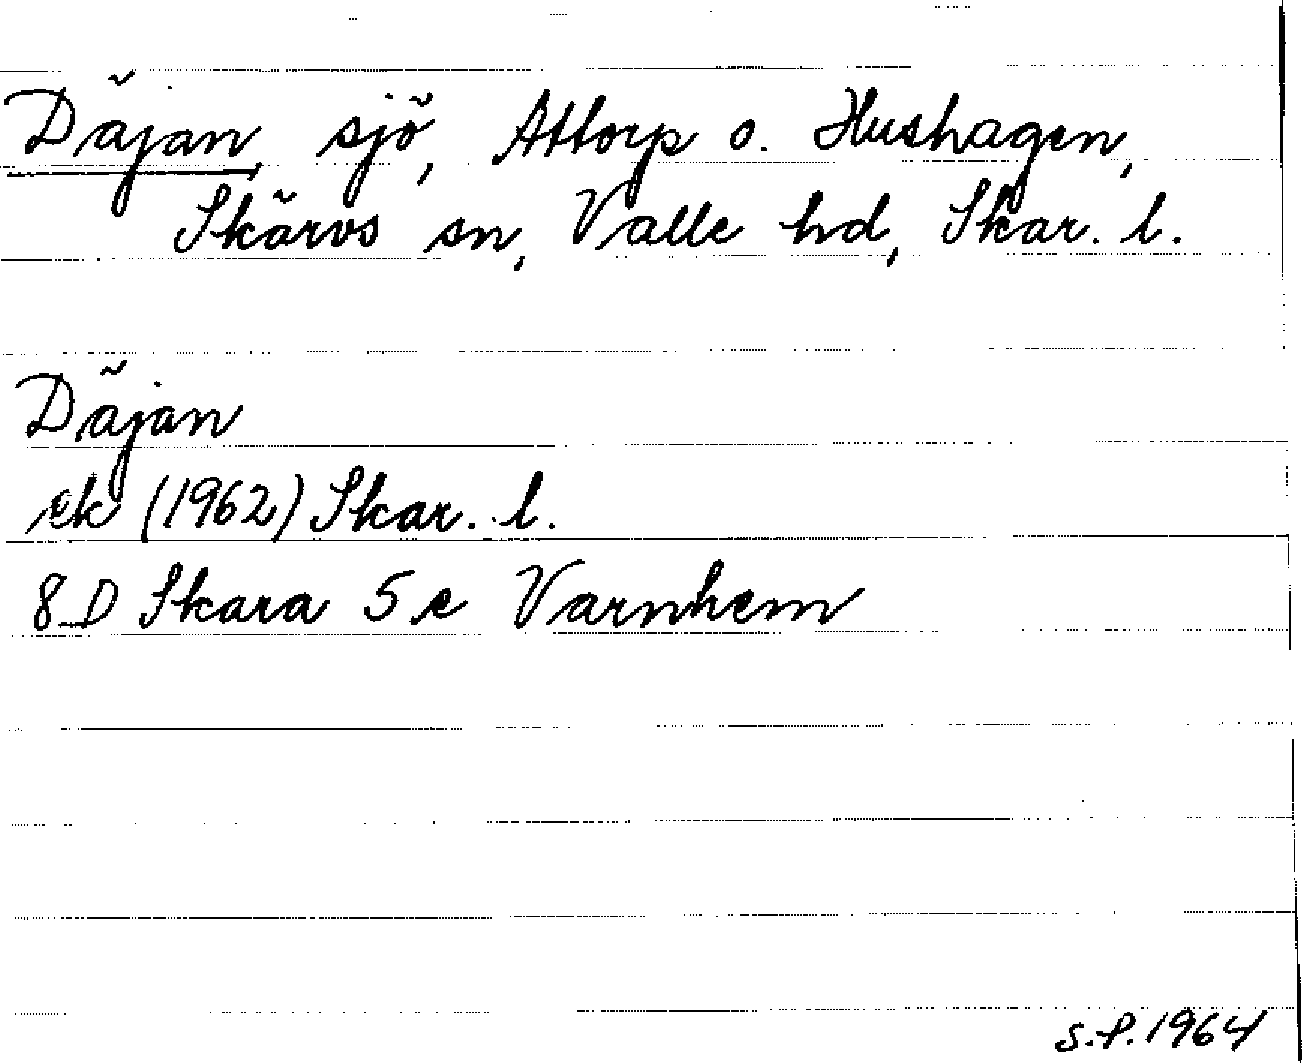 Däjan, sjö, Attorp o. Hushagen,
Skärvs sn, Valle hd, Skar. l.
Däjan
ek (1962) Skar. l.
8 D Skara 5 e Varnhem
S.P. 1964